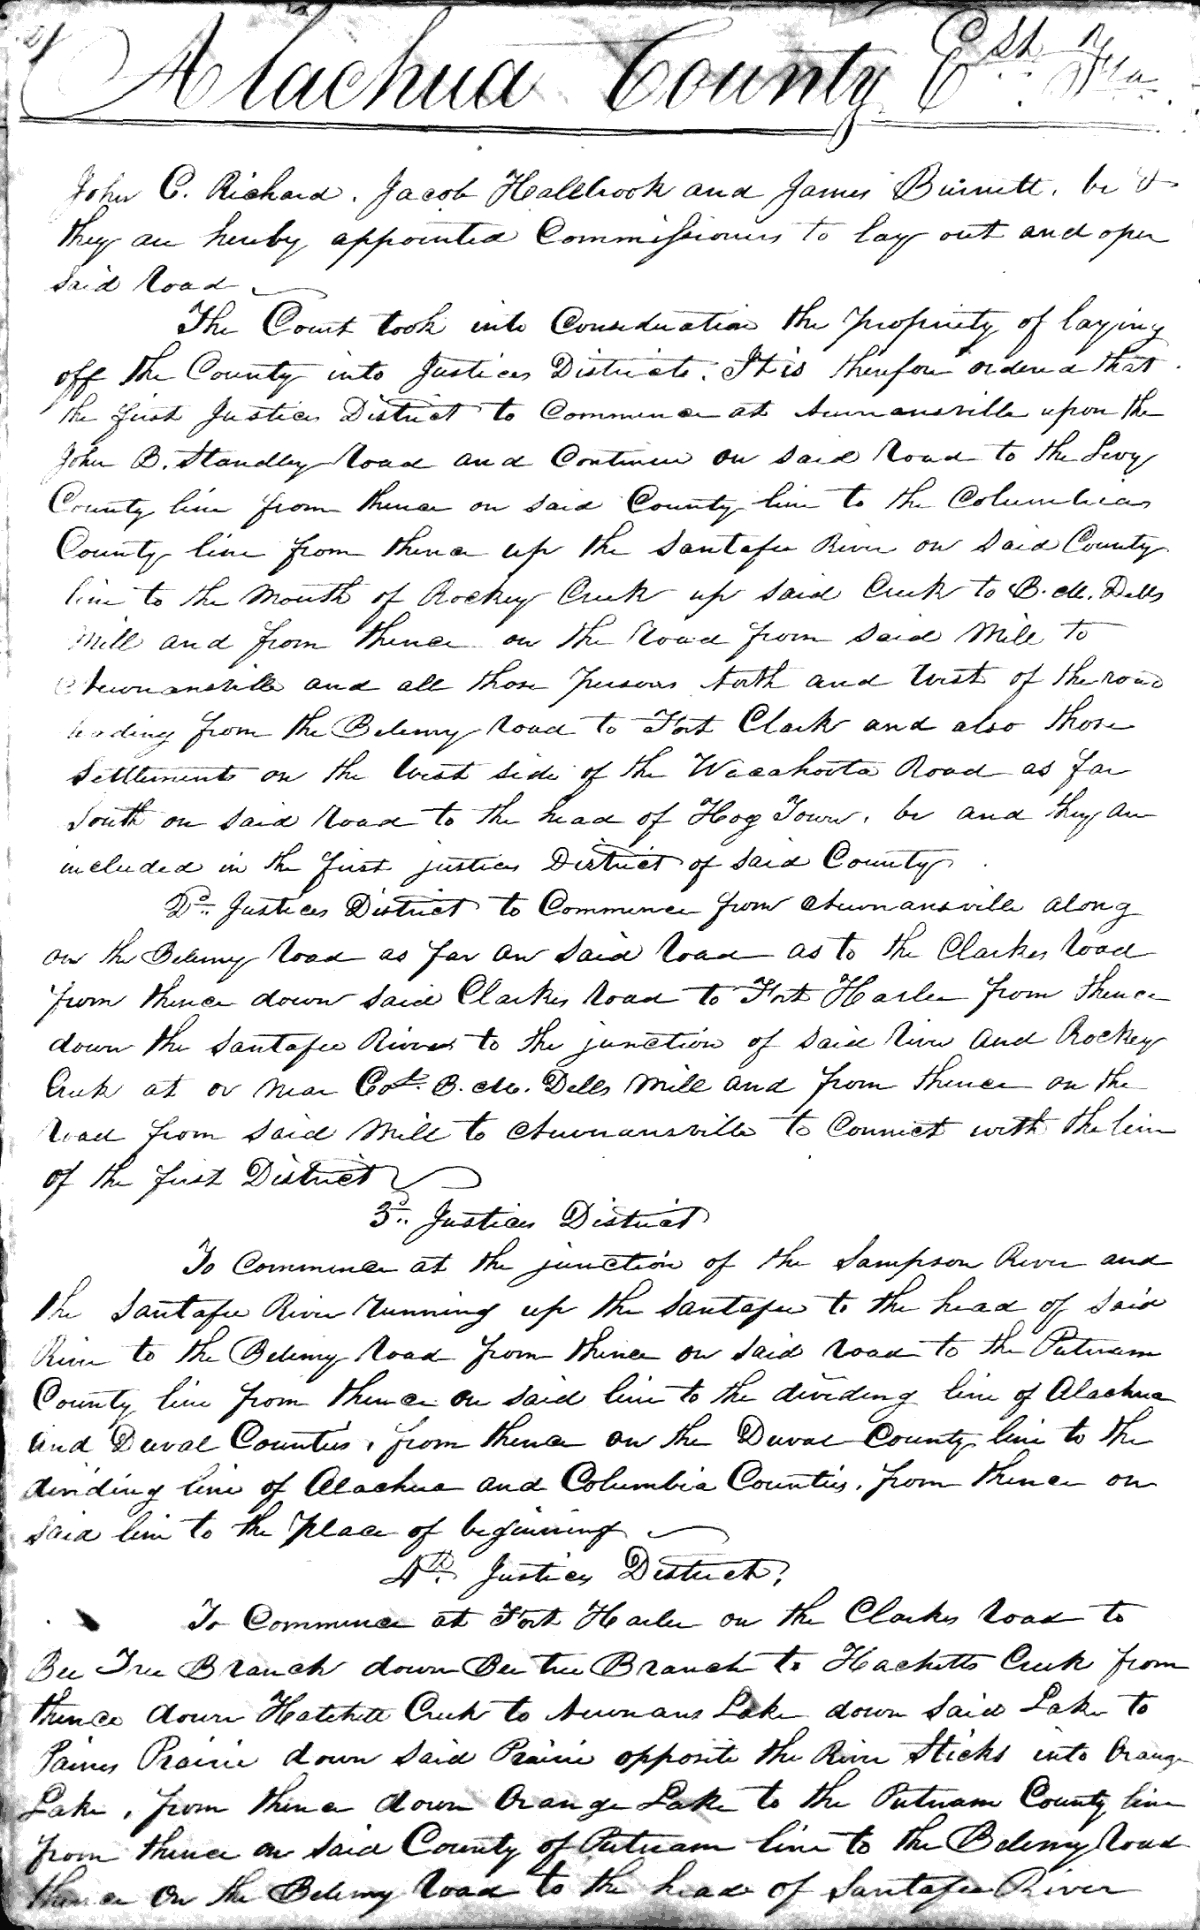 Alachua County Est Fla
John C. Richard. Jacob Halbrook and James Burnett. be &
they are hereby appointed Commissioners to lay out and open
said road
The Court took into Consideration the propriety of laying
off the County into Justices Districts. It is therefore ordered that
the first Justices District to Commence at Newnansville upon the
John B. Standley road and Continue on said road to the Levy
County line from thence on said County line to the Columbia
County line from thence up the Santafee River on said County
line to the Mouth of Rockey Creek up said Creek to B. M. Dells
Mill and from thence on the road from said Mill to
Newnansville and all those persons North and West of the road
leading from the Belemy road to Fort Clark and also those
Settlements on the West side of the Wacahoota Road as far
South on said road to the head of Hog Town, be and they are
included in the first justices District of said County.
Do. Justices District to Commence from Newnansville along
on the Belemy road as far on said road as to the Clarkes road
from thence down said Clarkes road to Fort Harlee from thence
down the Santafee River to the junction of said river and Rockey
Creek at or near Col. B. M. Dells Mill and from thence on the
road from said Mill to Newnansville to Connect with the line
of the first District
3d. Justices District
To Commence at the junction of the Sampson River and
the Santafee River running up the Santafee to the head of said
River to the Belemy road from thence on said road to the Putnam
County line from thence on said line to the dividing line of Alachua
and Duval Counties, from thence on the Duval County line to the
dividing line of Alachua and Columbia Counties, from thence on
said line to the place of beginning
4th. Justices District,
To Commence at Fort Harlee on the Clarkes road to
Bee Tree Branch down Bee tree Branch to Hachetts Creek from
thence down Hatchett Creek to Newnans Lake down said Lake to
Paines Prairie down said Prairie opposite the River Sticks into Orange
Lake, from thence down Orange Lake to the Putnam County line
from thence on said County of Putnam line to the Belemy road
thence on the Belemy road to the head of Santafee River